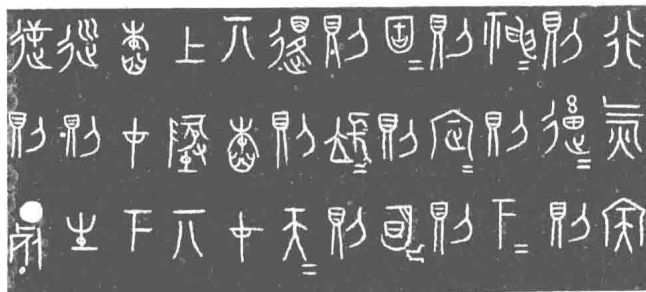 行氣宎
則𨒌=則
神=則下=
則定=則
固=則明=
則㙷=則
復則天=
丌舂才
上墜丌
舂才下
巡則生
逆則死